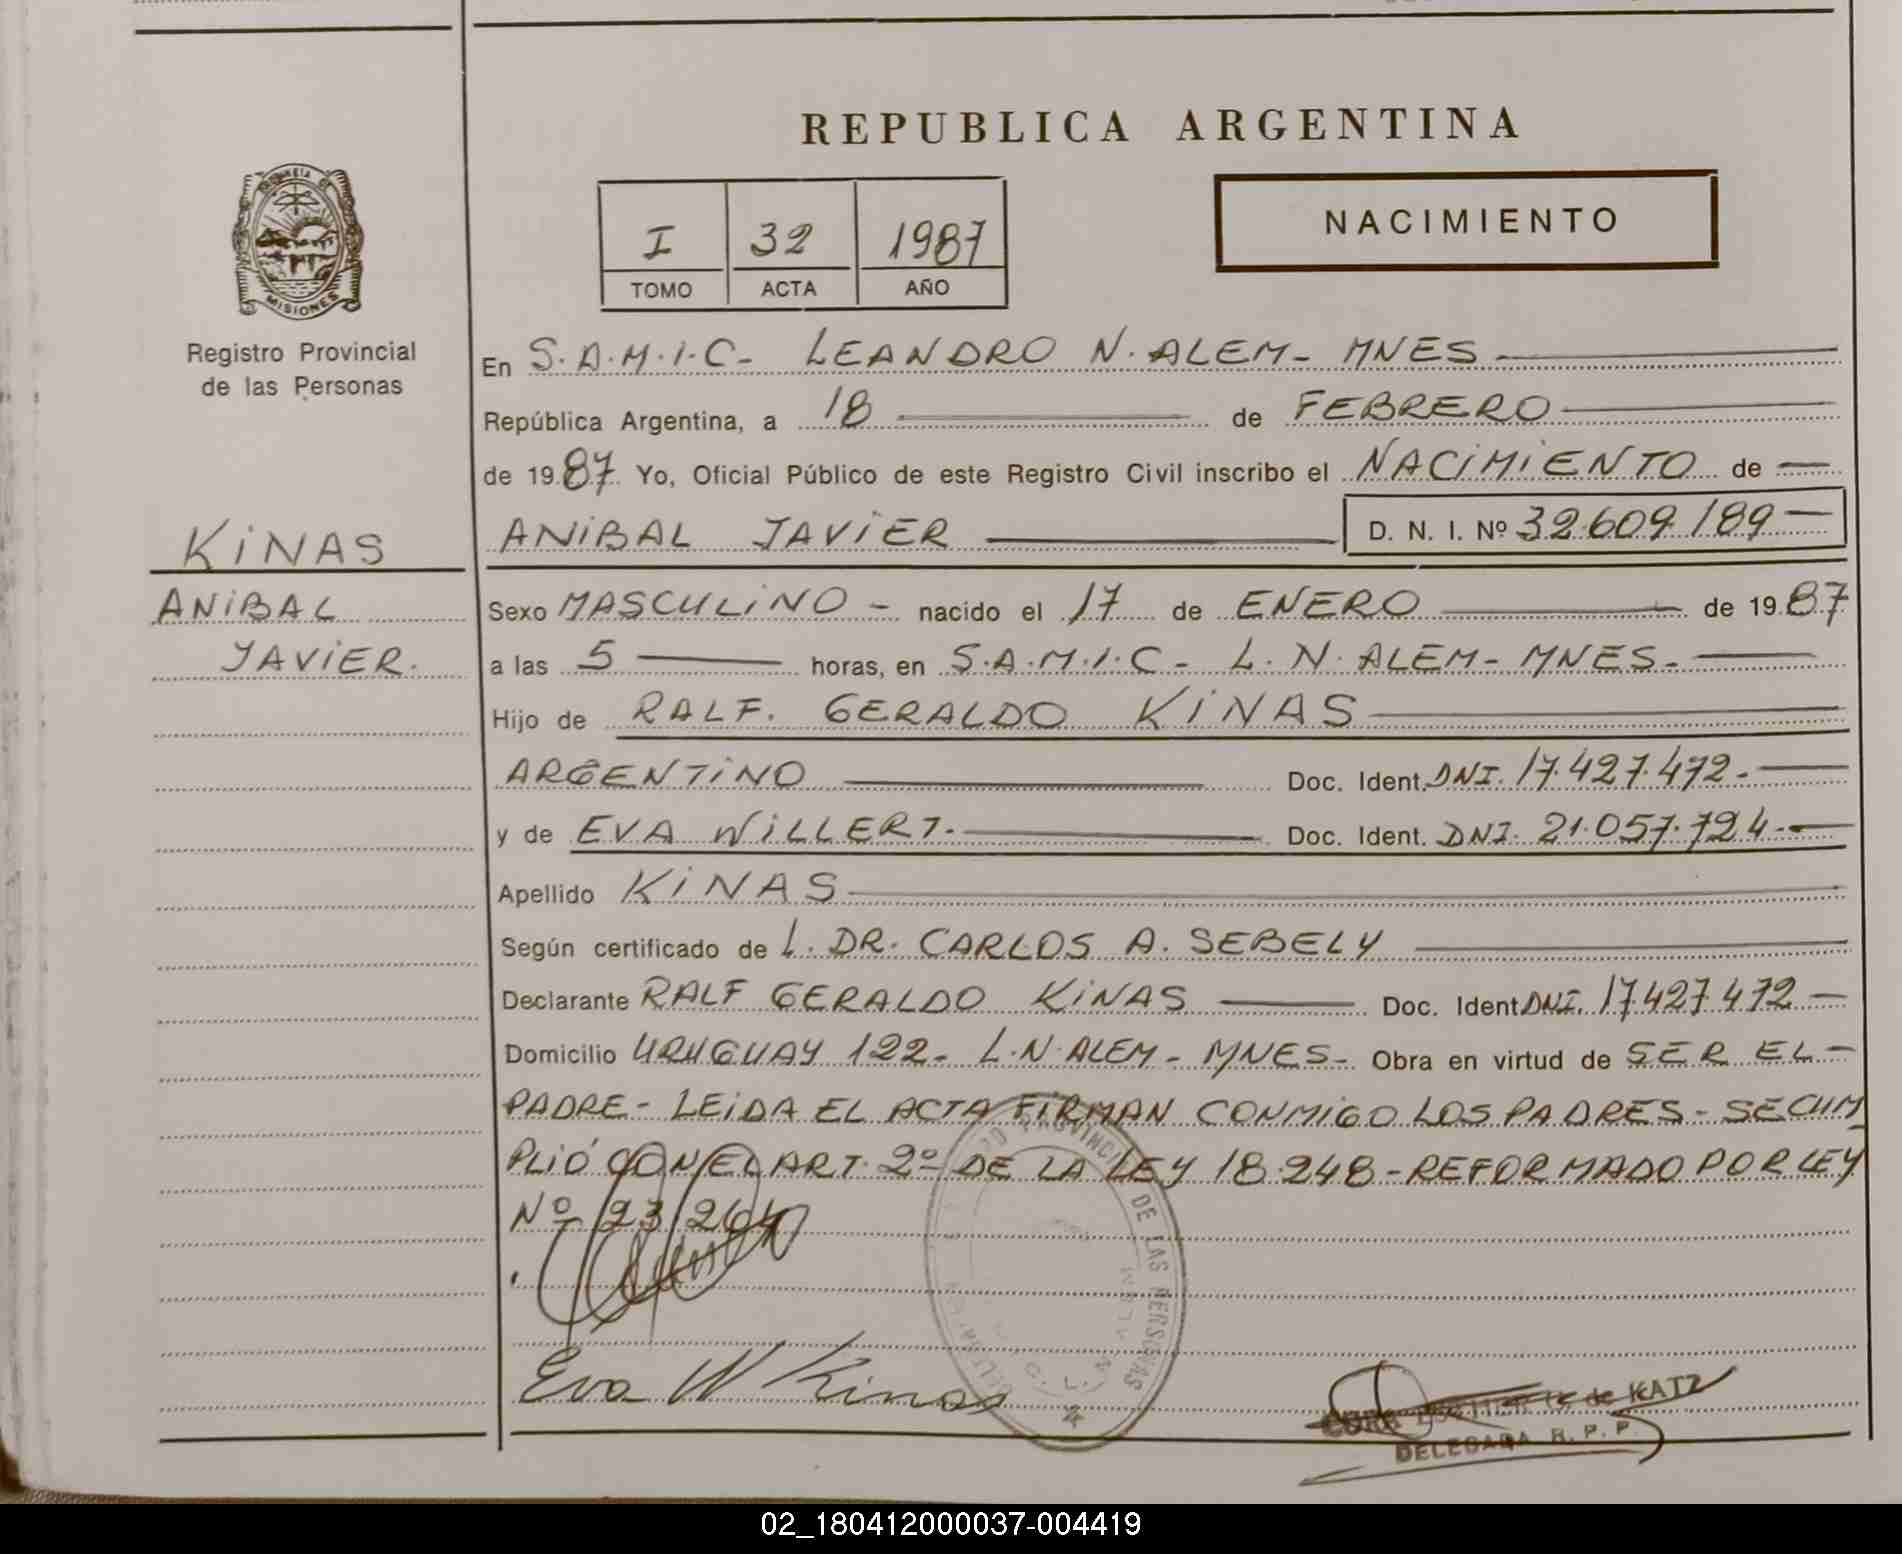 REPUBLICA ARGENTINA
PROVINCIA DE
MISIONES
Registro Provincial
de las Personas
I 32 1987
TOMO ACTA AÑO
NACIMIENTO
En S.A.M.I.C- LEANDRO N. ALEM- MNES
República Argentina, a 18 de FEBRERO
de 1987 Yo, Oficial Público de este Registro Civil inscribo el NACIMIENTO de
ANIBAL JAVIER D. N. I. Nº 32.609.189
KINAS
ANIBAL
JAVIER.
Sexo MASCULINO - nacido el 17 de ENERO de 1987
a las 5 horas, en S.A.M.I.C- L. N. ALEM- MNES-
Hijo de RALF. GERALDO KINAS
ARGENTINO Doc. Ident. DNI. 17.427.472.-
y de EVA WILLERT.- Doc. Ident. DNI. 21.057.724-
Apellido KINAS
Según certificado de L. DR. CARLOS A. SEBELY
Declarante RALF GERALDO KINAS Doc. Ident DNI. 17.427.472-
Domicilio URUGUAY 122- L.N.ALEM- MNES- Obra en virtud de SER EL-
PADRE- LEIDA EL ACTA FIRMAN CONMIGO LOS PADRES- SECUM
PLIÓ CON EL ART. 2º DE LA LEY 18.248-REFORMADO POR LEY
Nº 23/264
DE LAS PERSONAS
Eva W Kinas
de KATZ
DELEGADA R. P. P.
02_180412000037-004419